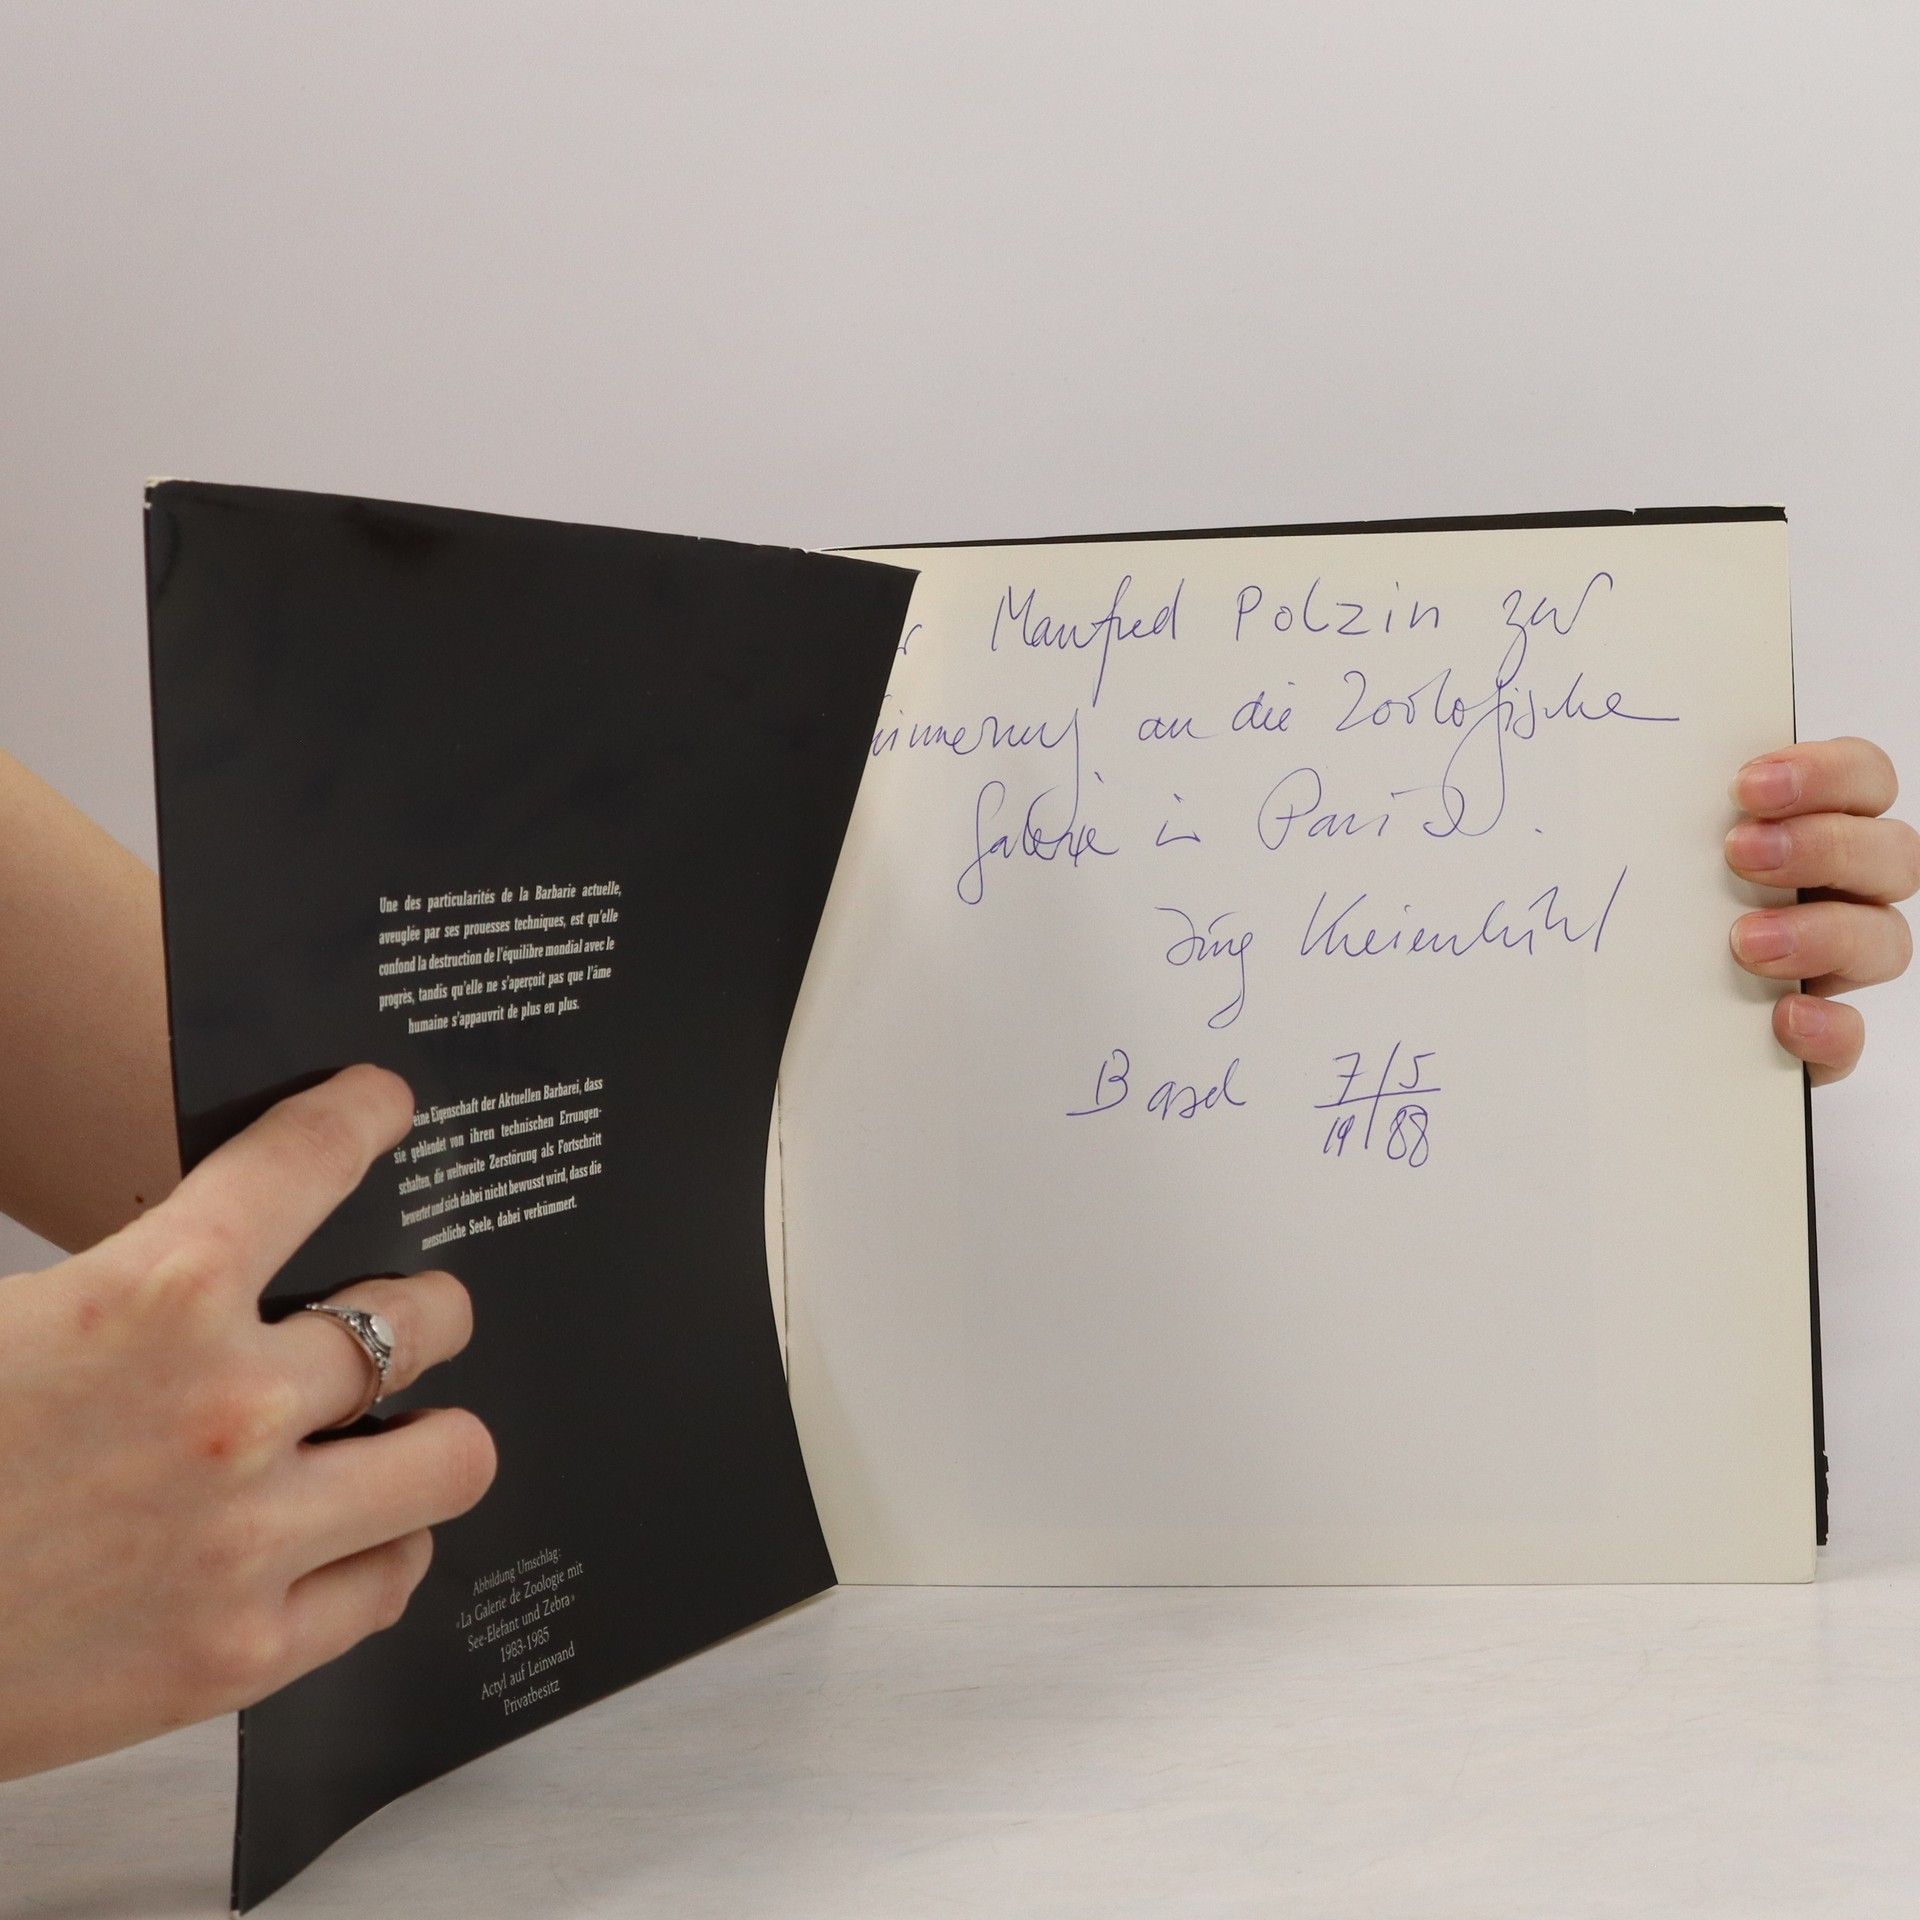 Une des particularités de la Barbarie actuelle,
aveuglée par ses prouesses techniques, est qu'elle
confond la destruction de l'équilibre mondial avec le
progrès, tandis qu'elle ne s'aperçoit pas que l'âme
humaine s'appauvrit de plus en plus.
eine Eigenschaft der Aktuellen Barbarei, dass
sie geblendet von ihren technischen Errungen-
schaften, die weltweite Zerstörung als Fortschritt
bewertet und sich dabei nicht bewusst wird, dass die
menschliche Seele, dabei verkümmert.
Abbildung Umschlag:
«La Galerie de Zoologie mit
See-Elefant und Zebra»
1983-1985
Actyl auf Leinwand
Privatbesitz
Manfred Polzin zur
innerung an die Zoologische
Galerie in Paris.
Jürg Kreienbühl
Basel 7/5
19/88